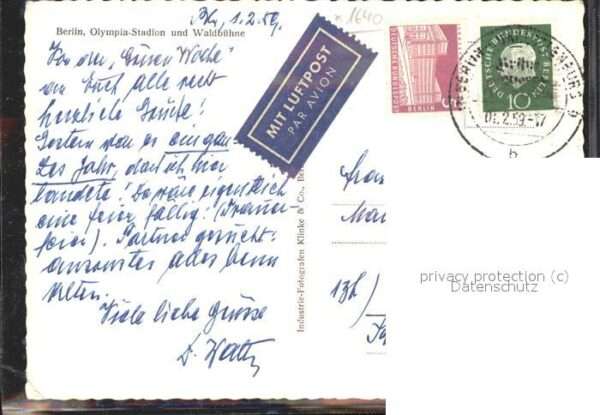 Bln, 1.2.59.
Berlin, Olympia-Stadion und Waldbühne
Von der "Grünen Woche"
an Euch alle recht
herzliche Grüße!
Gestern war es ein ganzes
Jahr, daß ich hier
landete! Da wäre eigentlich
eine Feier fällig! (Trauerfeier).
Partner gesucht!
Ansonsten alles beim
Alten.
Viele liebe Grüsse
MIT LUFTPOST
PAR AVION
1640
DEUTSCHE BUNDESPOST
BERLIN
DEUTSCHE BUNDESPOST BERLIN
10
BERLIN
01.2.59-17
b
Industrie-Fotografen Klinke & Co., Ber
13b)
privacy protection (c)
Datenschutz